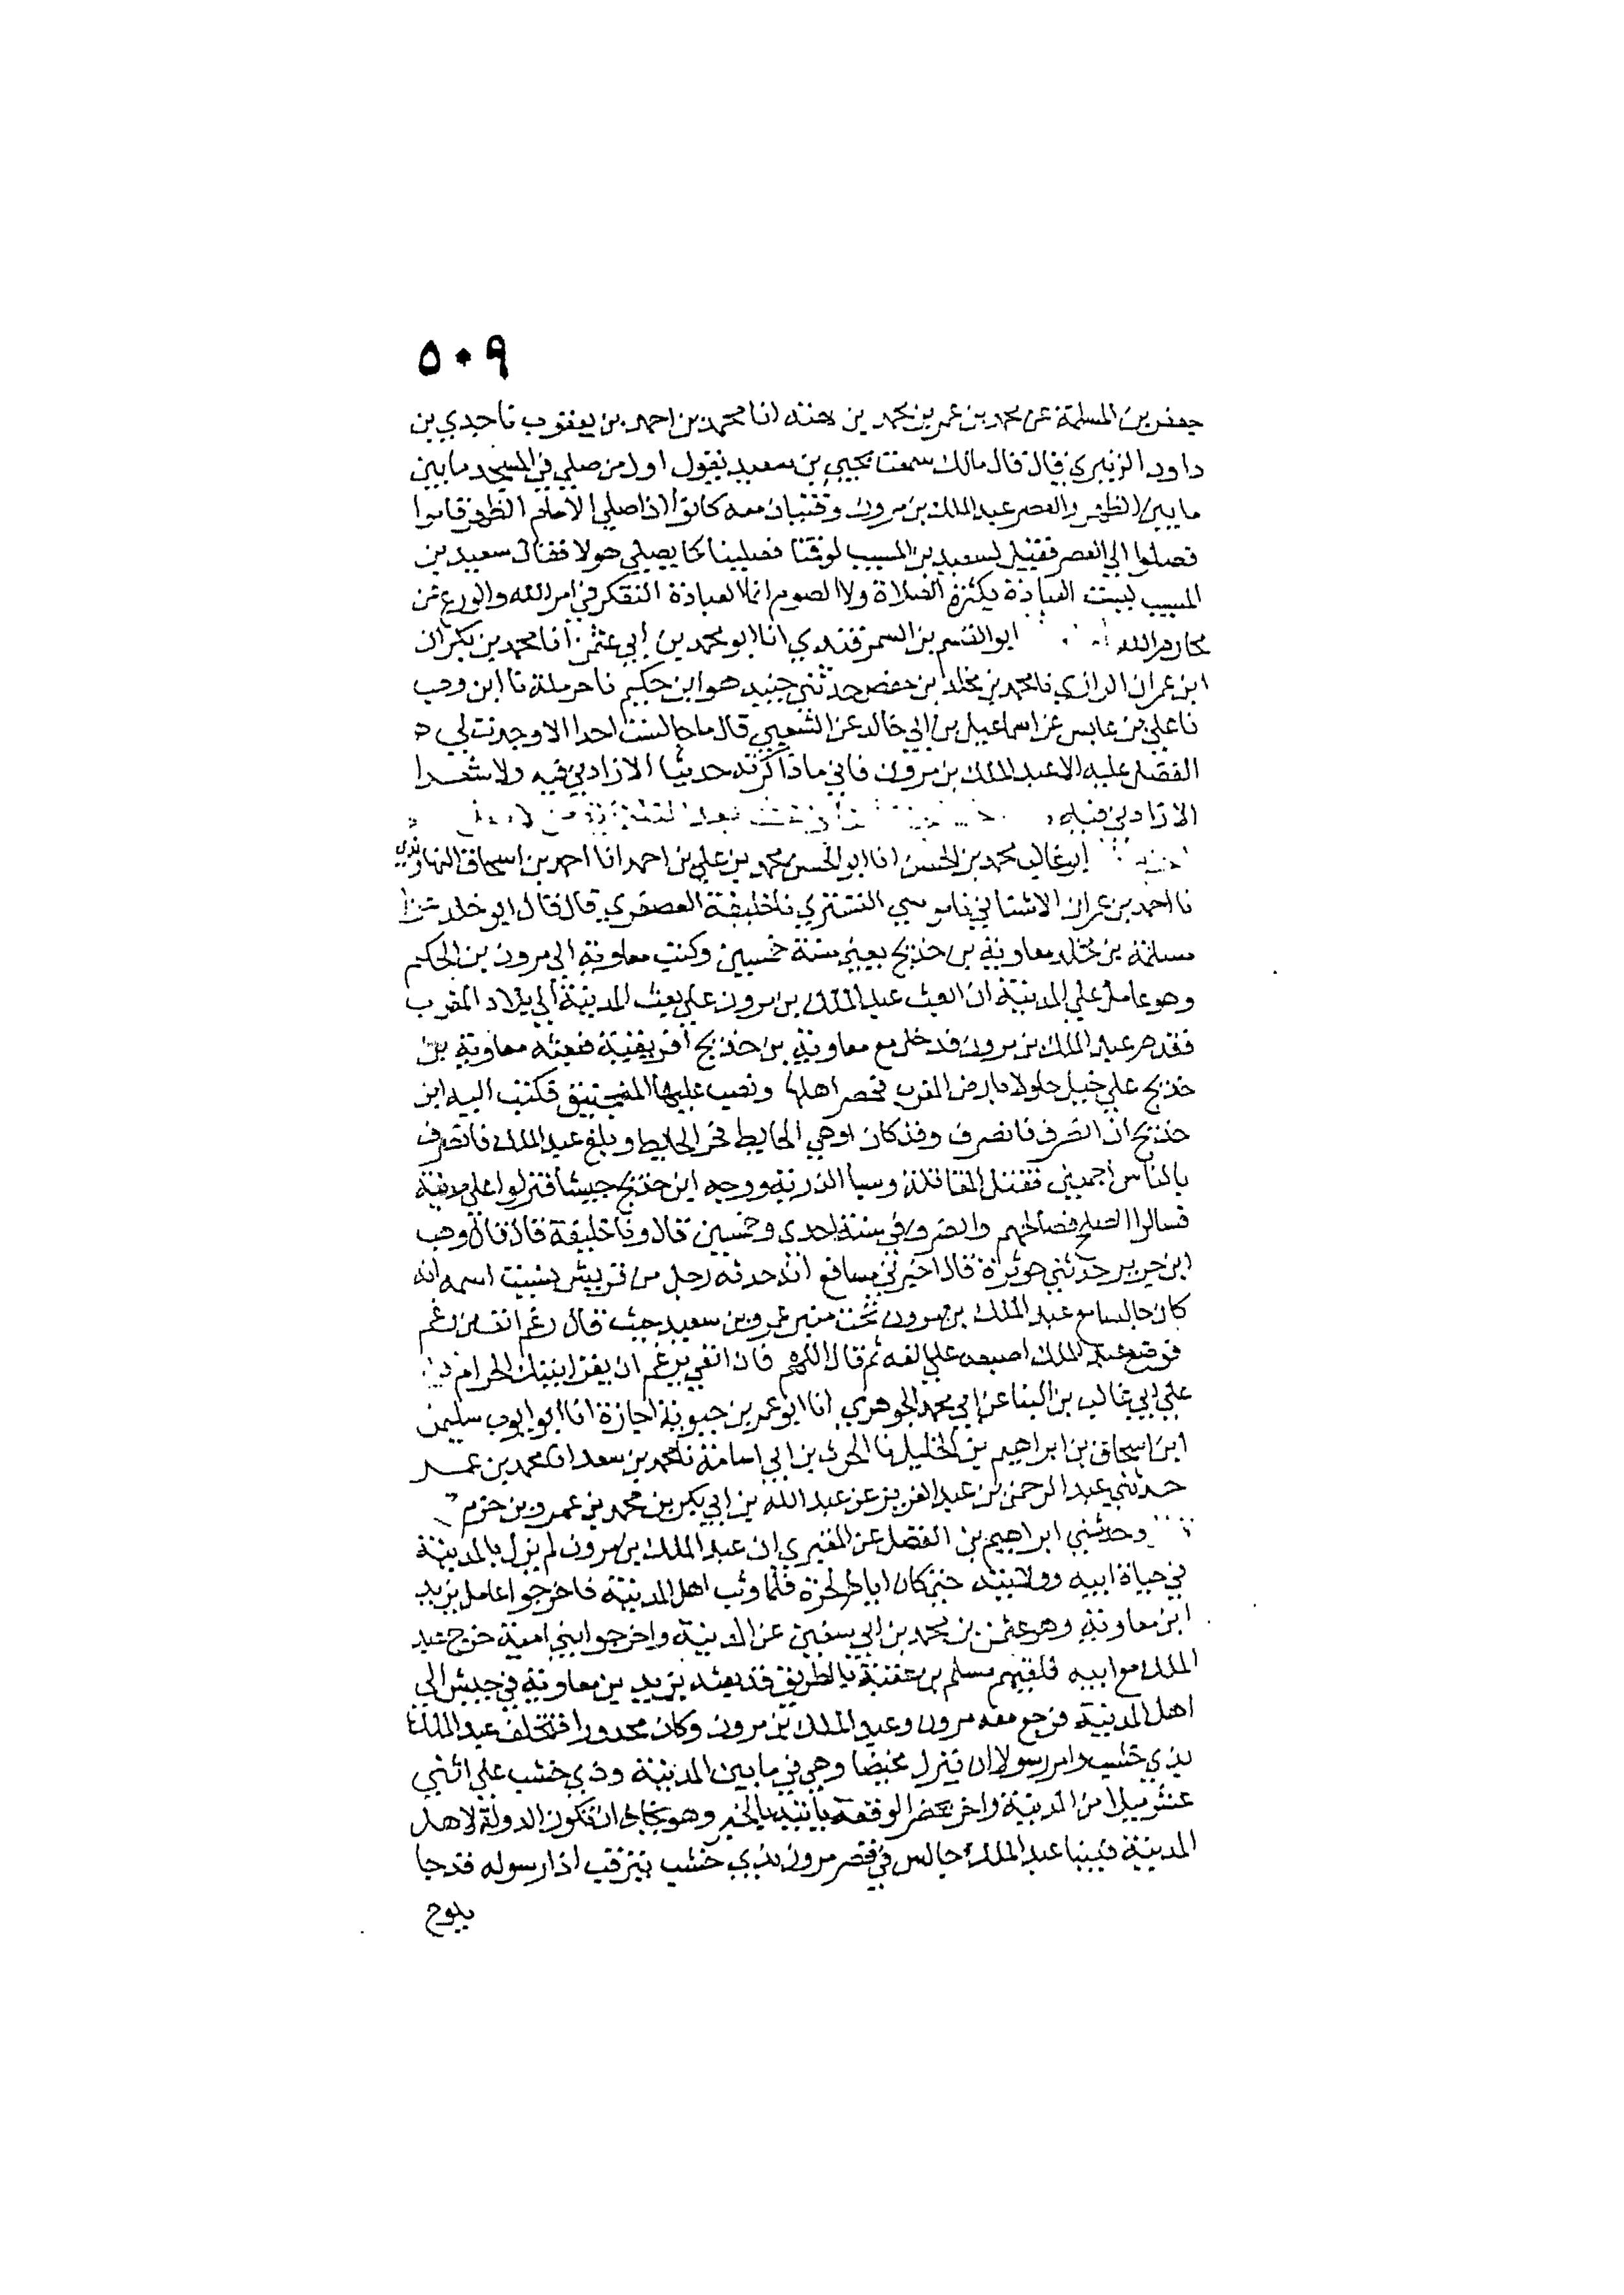 ٥٠٩
جعفر بن المسلمة عن محمد بن عمر بن محمد بن هته انا محمد بن احمد بن يعقوب نا جدي بن
داود الزنبري قال قال مالك سمعت يحيى بن سعيد يقول اول من صلي في المسجد ما بين
ما بين الظهر والعصر عبد الملك بن مرون وفتيان معه كانوا اذا صلي الامام الظهر قاموا
فصلوا الي العصر فقيل لسعيد بن المسيب لو قمنا فصلينا كما يصلي هولا فقال سعيد بن
المسيب ليست العبادة بكثرة الصلاة ولا الصوم انما العبادة التفكر في امر الله والورع عن
محارم الله ابو القسم بن السمرقندي انا ابو محمد بن ابي عثمن انا محمد بن بكران
ابن عمران الرازي نا محمد بن مخلد بن حفص حدثني جنيد هو ابن حكيم نا حرملة نا ابن وهب
نا علي بن عابس عن اسماعيل بن ابي خالد عن الشعبي قال ما جالست احدا الا وجدت لي
الفضل عليه الا عبد الملك بن مرون فاني ما ذاكرته حديثا الا زادني فيه ولا شعرا
الا زادني فيه
ابو غالب محمد بن الحسن انا ابو الحسن محمد بن علي بن احمد انا احمد بن اسحاق النهاوندي
نا احمد بن عمران الاشناني نا موسي التستري نا خليفة العصفري قال قال ابو خلد
مسلمة بن مخلد معاوية بن حديج يعني سنة خمسين وكتب معاوية الي مرون بن الحكم
وهو عامل علي المدينة ان ابعث عبد الملك بن مرون علي بعث المدينة الي بلاد المغرب
فقدم عبد الملك بن مرون فدخل مع معاوية بن حديج افريقية فبعثه معاوية بن
حديج علي خيل جلولا بارض المغرب فحصر اهلها ونصب عليها المنجنيق فكتب اليه ابن
حديج ان انصرف فانصرف وقد كان اوهي الحايط فخر الحايط وبلغ عبد الملك فانصرف
بالناس اجمعين فقتل المقاتلة وسبا الذرية ووجه ابن حديج جيشا فنزلوا علي مدينة
فسالوا الصلح فصالحهم وانصرف في سنة احدى وخمسين قال ونا خليفة قال قال وهب
ابن جرير حدثني جويرة قال اخبرني مسافع انه حدثه رجل من قريش نسيت اسمه انه
كان جالسا مع عبد الملك بن مرون تحت منبر عمرو بن سعيد حيث قال رغم انف من رغم
فوضع عبد الملك اصبعه علي انفه ثم قال اللهم فان انفي يرغم ان يغزا بيتك الحرام
علي ابي غالب بن البنا عن ابي محمد الجوهري انا ابو عمر بن حيوية اجازة انا ابو ايوب سليمن
ابن اسحاق بن ابراهيم بن الخليل نا الحرث بن ابي اسامة نا محمد بن سعد انا محمد بن عمر
حدثني عبد الرحمن بن عبد العزيز عن عبد الله بن ابي بكر بن محمد بن عمرو بن حزم
وحدثني ابراهيم بن الفضل عن المقبري ان عبد الملك بن مرون لم يزل بالمدينة
في حياة ابيه وولايته حتي كان ايام الحرة فلما وثب اهل المدينة فاخرجوا عامل يزيد
ابن معاوية وهو عثمن بن محمد بن ابي سفين عن المدينة واخرجوا بني امية خرج عبد
الملك مع ابيه فلقيهم مسلم بن عقبة بالطريق قد بعثه يزيد بن معاوية في جيش الي
اهل المدينة فرجع معه مرون وعبد الملك بن مرون وكان مجدورا فتخلف عبد الملك
بذي خشب وامر رسولا ان ينزل مخيضا وهي في ما بين المدينة وذي خشب علي اثني
عشر ميلا من المدينة واخر يحضر الوقعة ياتيه بالخبر وهو يخاف ان تكون الدولة لاهل
المدينة فبينا عبد الملك جالس في قصر مرون بذي خشب يترقب اذا رسوله قد جا
يلوح